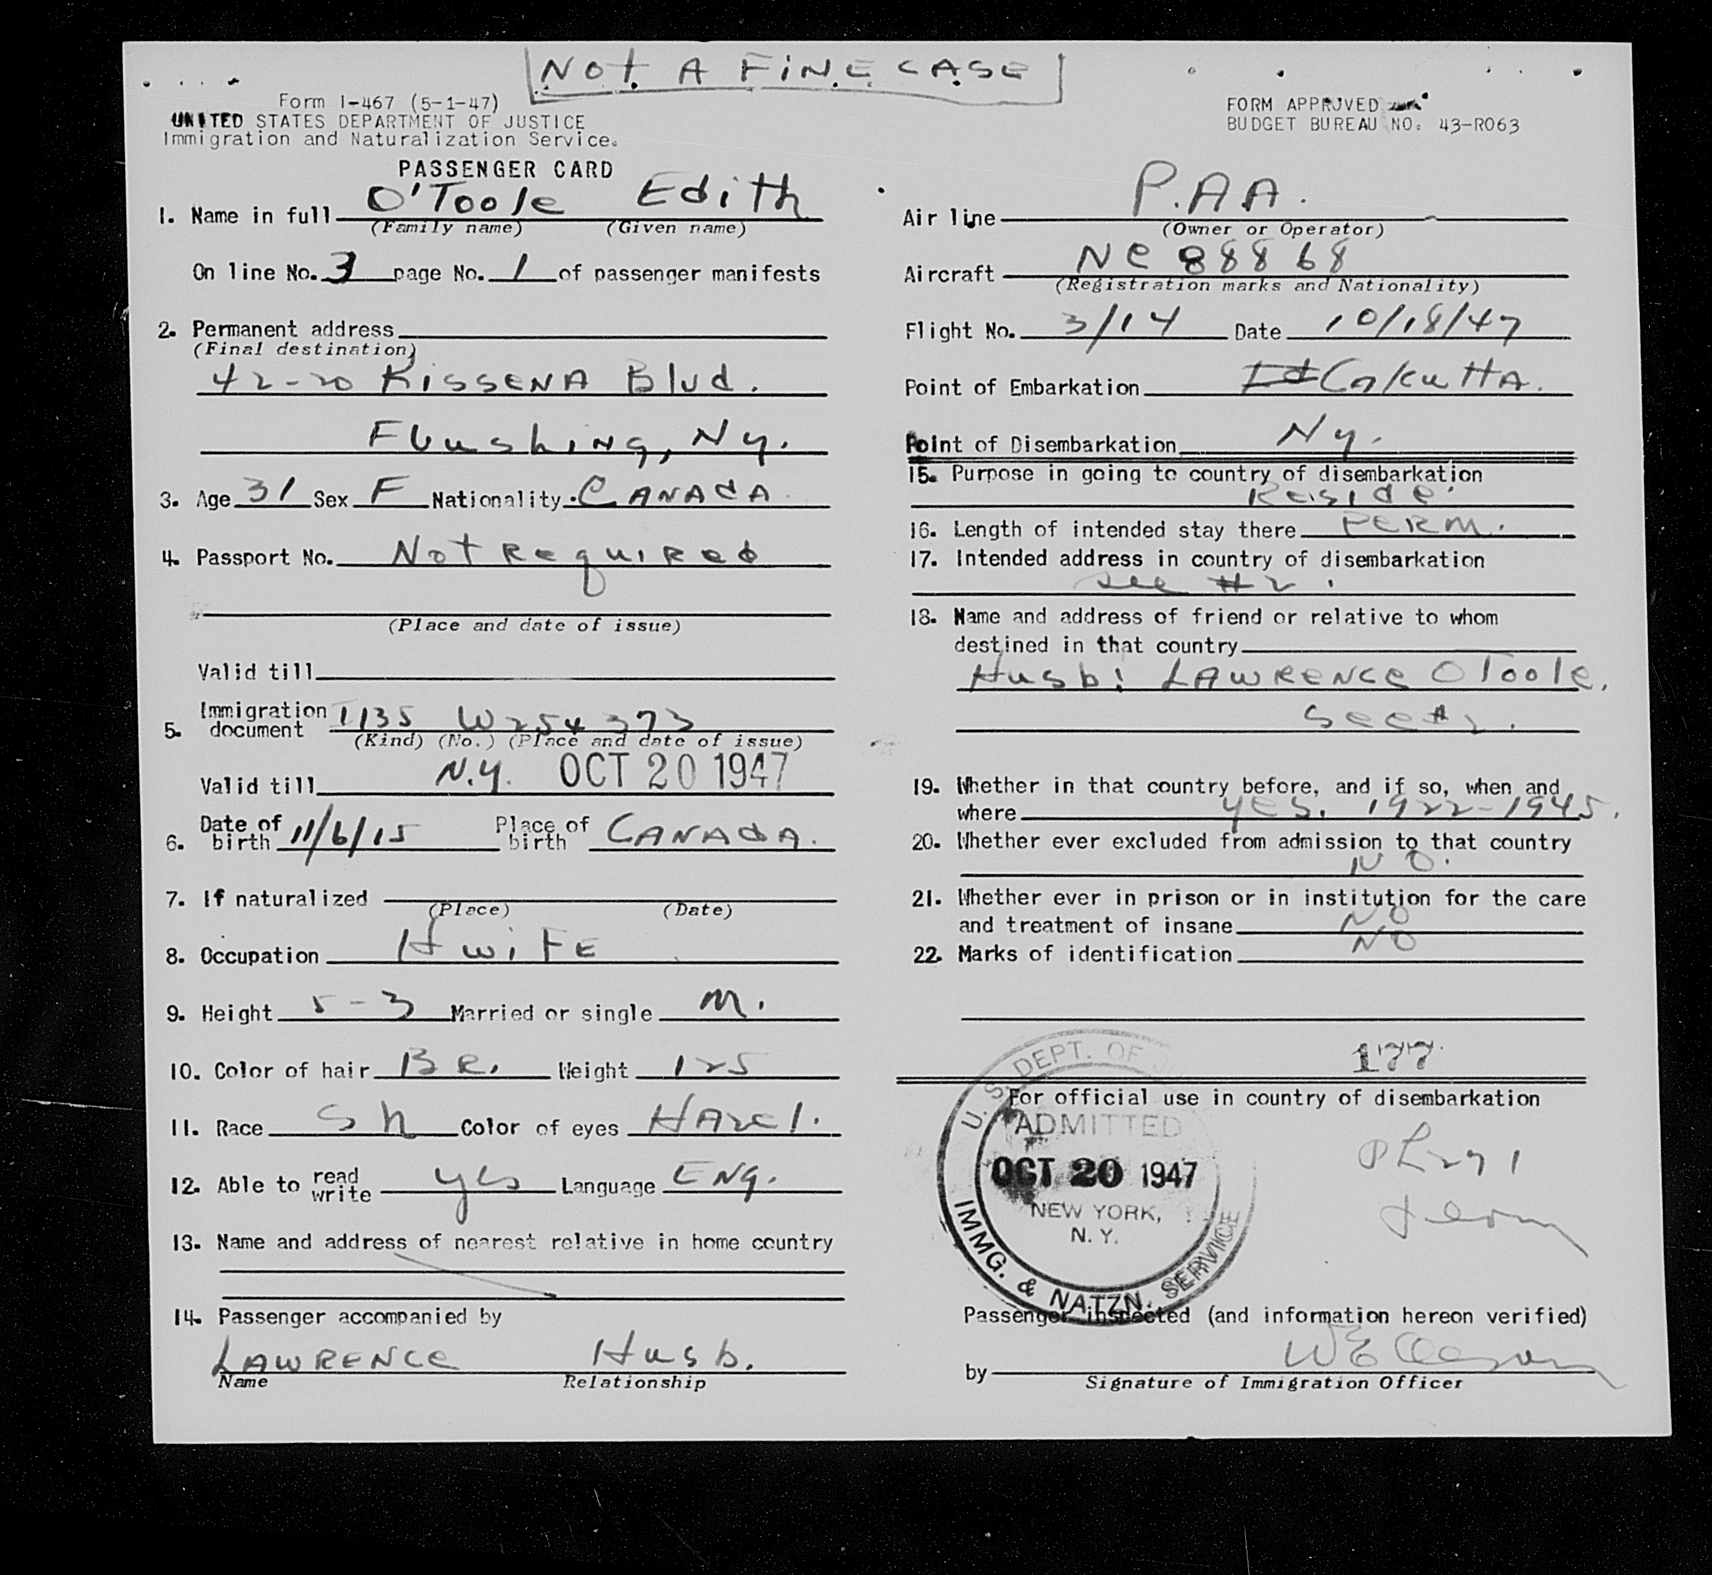 NOT A FINE CASE
Form I-467 (5-1-47)
UNITED STATES DEPARTMENT OF JUSTICE
Immigration and Naturalization Service.
PASSENGER CARD
1. Name in full O'Toole Edith
(Family name) (Given name)
On line No. 3 page No. 1 of passenger manifests
2. Permanent address
(Final destination)
42-20 Kissena Blvd.
Flushing, Ny.
3. Age 31 Sex F Nationality Canada
4. Passport No. Not Required
(Place and date of issue)
Valid till
5. Immigration document I135 W254373
(Kind) (No.) (Place and date of issue)
Valid till N.Y. OCT 20 1947
6. Date of birth 11/6/15 Place of birth Canada.
7. If naturalized
(Place) (Date)
8. Occupation HwiFE
9. Height 5-3 Married or single M.
10. Color of hair BR. Weight 125
11. Race Color of eyes Hazel.
12. Able to read write yes Language ENg.
13. Name and address of nearest relative in home country
14. Passenger accompanied by
Lawrence Husb.
Name Relationship
FORM APPROVED
BUDGET BUREAU NO. 43-R063
Air line P.A.A.
(Owner or Operator)
Aircraft NC 88868
(Registration marks and Nationality)
Flight No. 3/14 Date 10/18/47
Point of Embarkation Calcutta.
Point of Disembarkation Ny.
15. Purpose in going to country of disembarkation
Reside.
16. Length of intended stay there PERM.
17. Intended address in country of disembarkation
see #2.
18. Name and address of friend or relative to whom
destined in that country
Husb: Lawrence OToole.
See #2.
19. Whether in that country before, and if so, when and
where yes. 1922-1945.
20. Whether ever excluded from admission to that country
NO.
21. Whether ever in prison or in institution for the care
and treatment of insane NO
22. Marks of identification NO
177
For official use in country of disembarkation
U. S. DEPT. OF
ADMITTED
OCT 20 1947
NEW YORK,
N. Y.
IMMG. & NATZN. SERVICE
Passenger inspected (and information hereon verified)
by
Signature of Immigration Officer